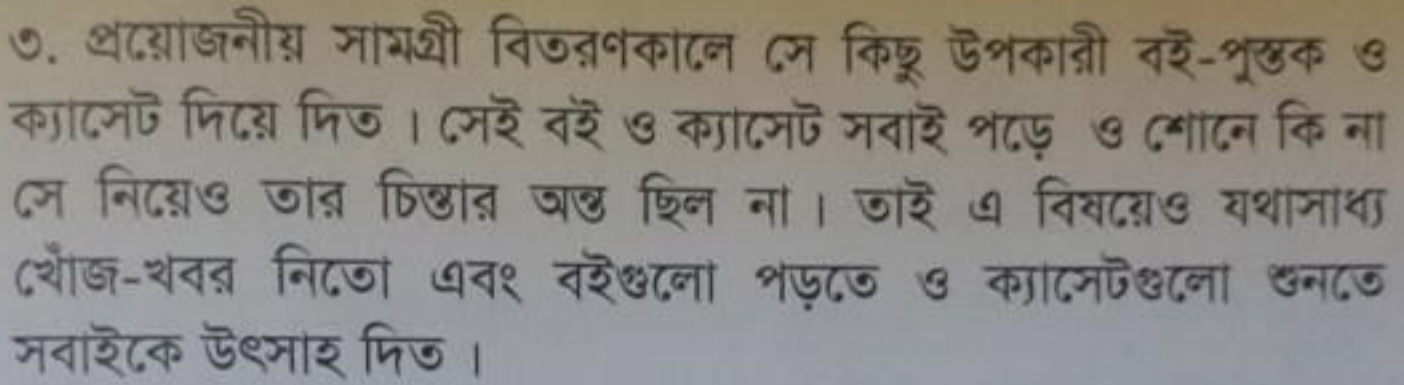 ৩. প্রয়োজনীয় সামগ্রী বিতরণকালে সে কিছু উপকারী বই-পুস্তক ও
ক্যাসেট দিয়ে দিত । সেই বই ও ক্যাসেট সবাই পড়ে ও শোনে কি না
সে নিয়েও তার চিন্তার অন্ত ছিল না । তাই এ বিষয়েও যথাসাধ্য
খোঁজ-খবর নিতো এবং বইগুলো পড়তে ও ক্যাসেটগুলো শুনতে
সবাইকে উৎসাহ দিত ।